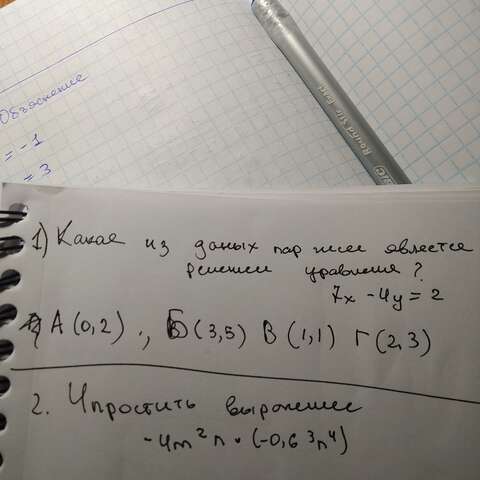 Объяснение
= -1
= 3
Round Stic
BIC
1) Какая из даных пар чисел является
решением уравнения?
7x - 4y = 2
А (0,2) ., Б (3,5) В (1,1) Г (2,3)
2. Упростить выражение
-4m²n • (-0,6 ³n⁴)